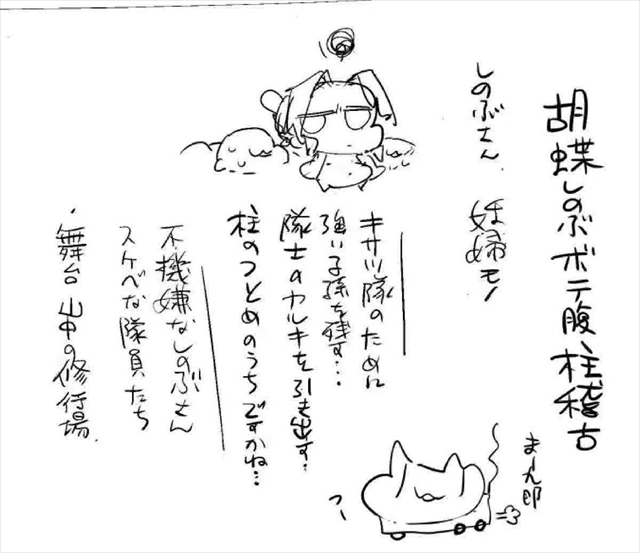 胡蝶しのぶボテ腹柱稽古
しのぶさん 妊婦モノ
キサツ隊のために
強い子孫を残す…
隊士のヤルキを引き出す…
柱のつとめのうちですかね…
不機嫌なしのぶさん
スケベな隊員たち
・舞台 山中の修行場.
まー九郎
つー